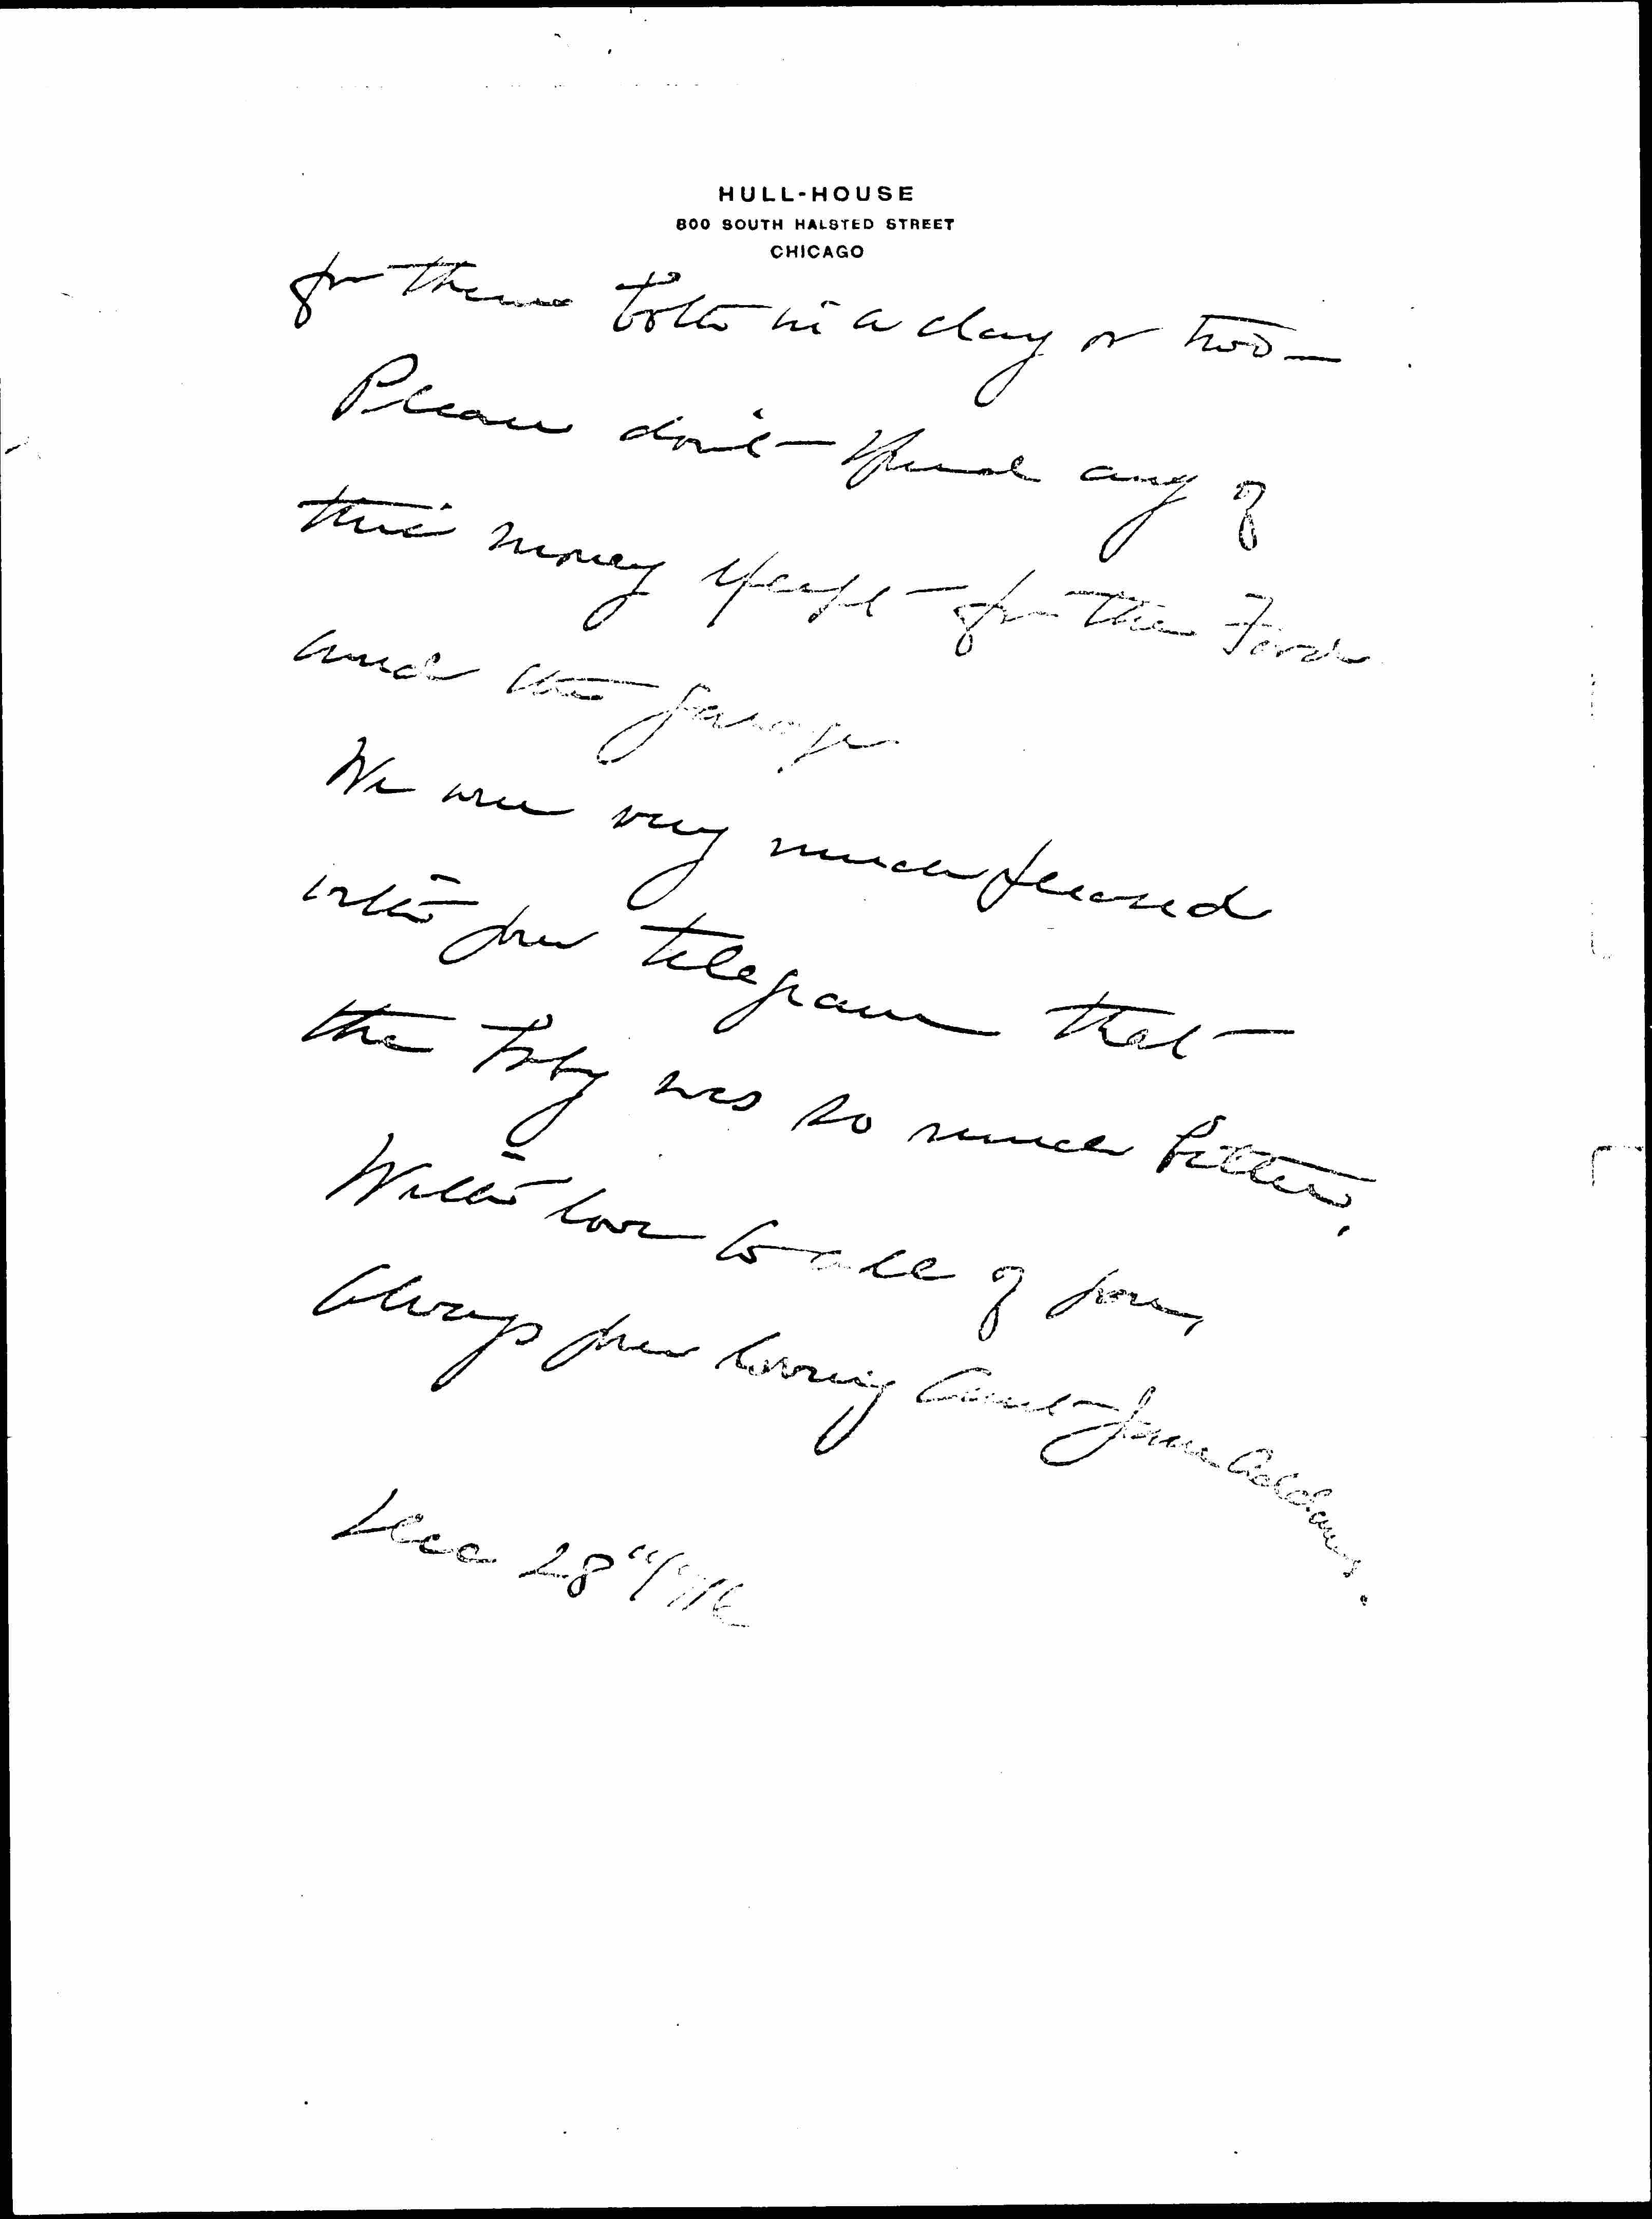 HULL-HOUSE
800 SOUTH HALSTED STREET
CHICAGO
for them both in a day or two—
Please don't spend any of
this money except for the Ford
and the garage
We were very much pleased
with your telegram that
the baby was so much better.
With love to all of you,
Always your loving Aunt Jane Addams.
Dec 28"